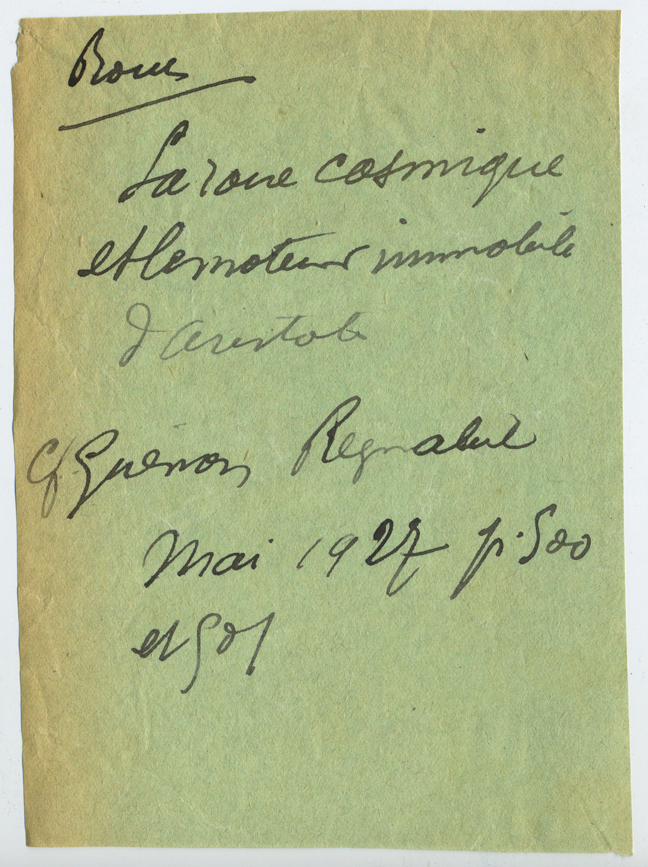 Roue
La roue cosmique
et le moteur immobile
d'Aristote
Cf Guénon Regnabit
Mai 1927 p. 500
et 501